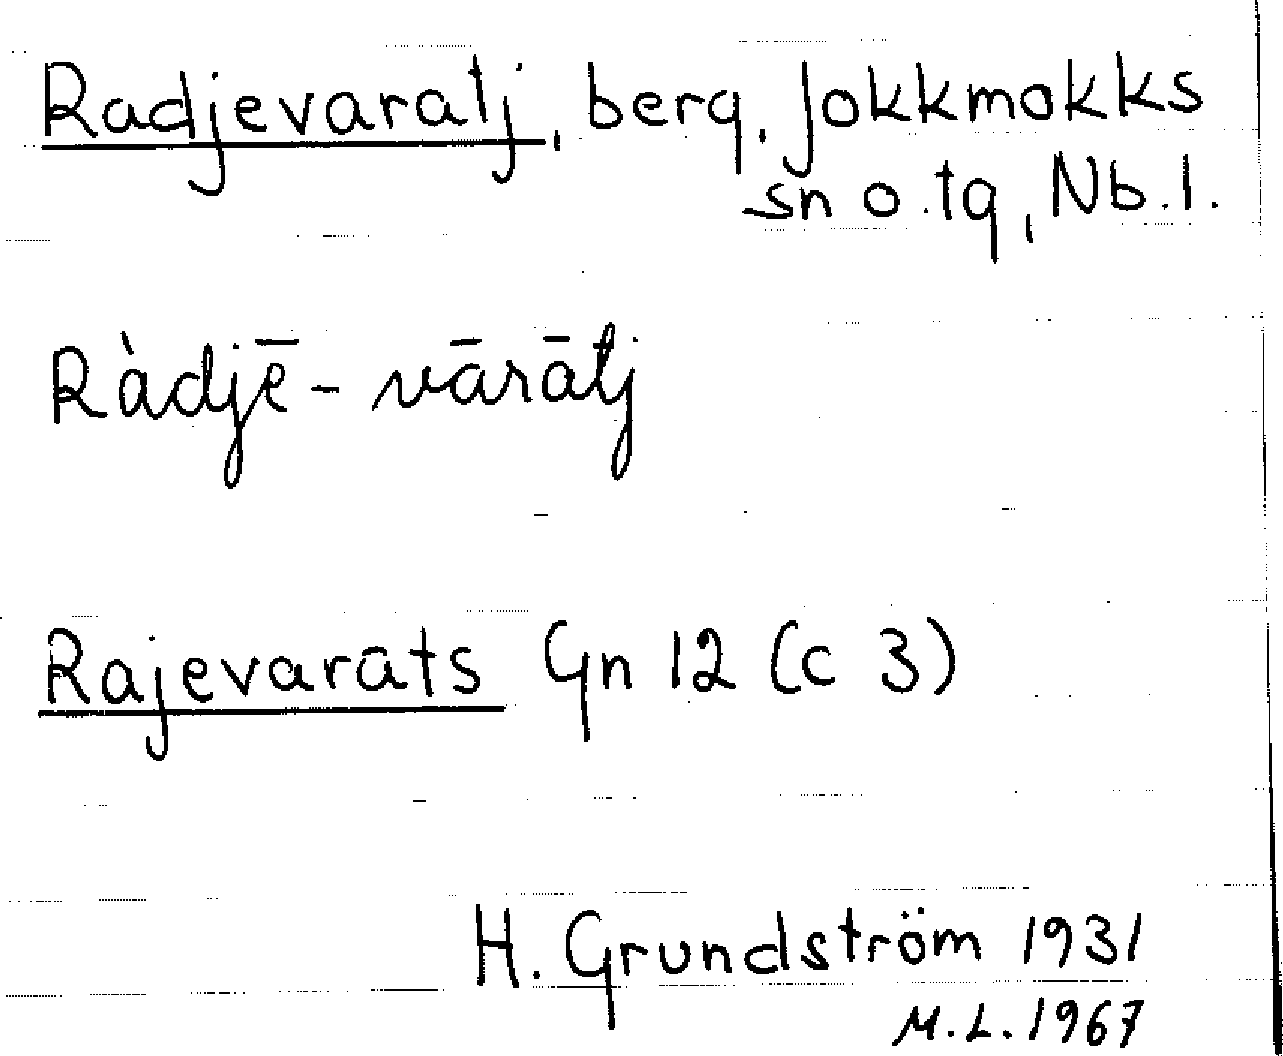 Radjevaratj, berg, Jokkmokks
sn o. tg, Nb. l.
Ràdjē-vārātj
Rajevarats Gn 12 (c 3)
H. Grundström 1931
M.L. 1967